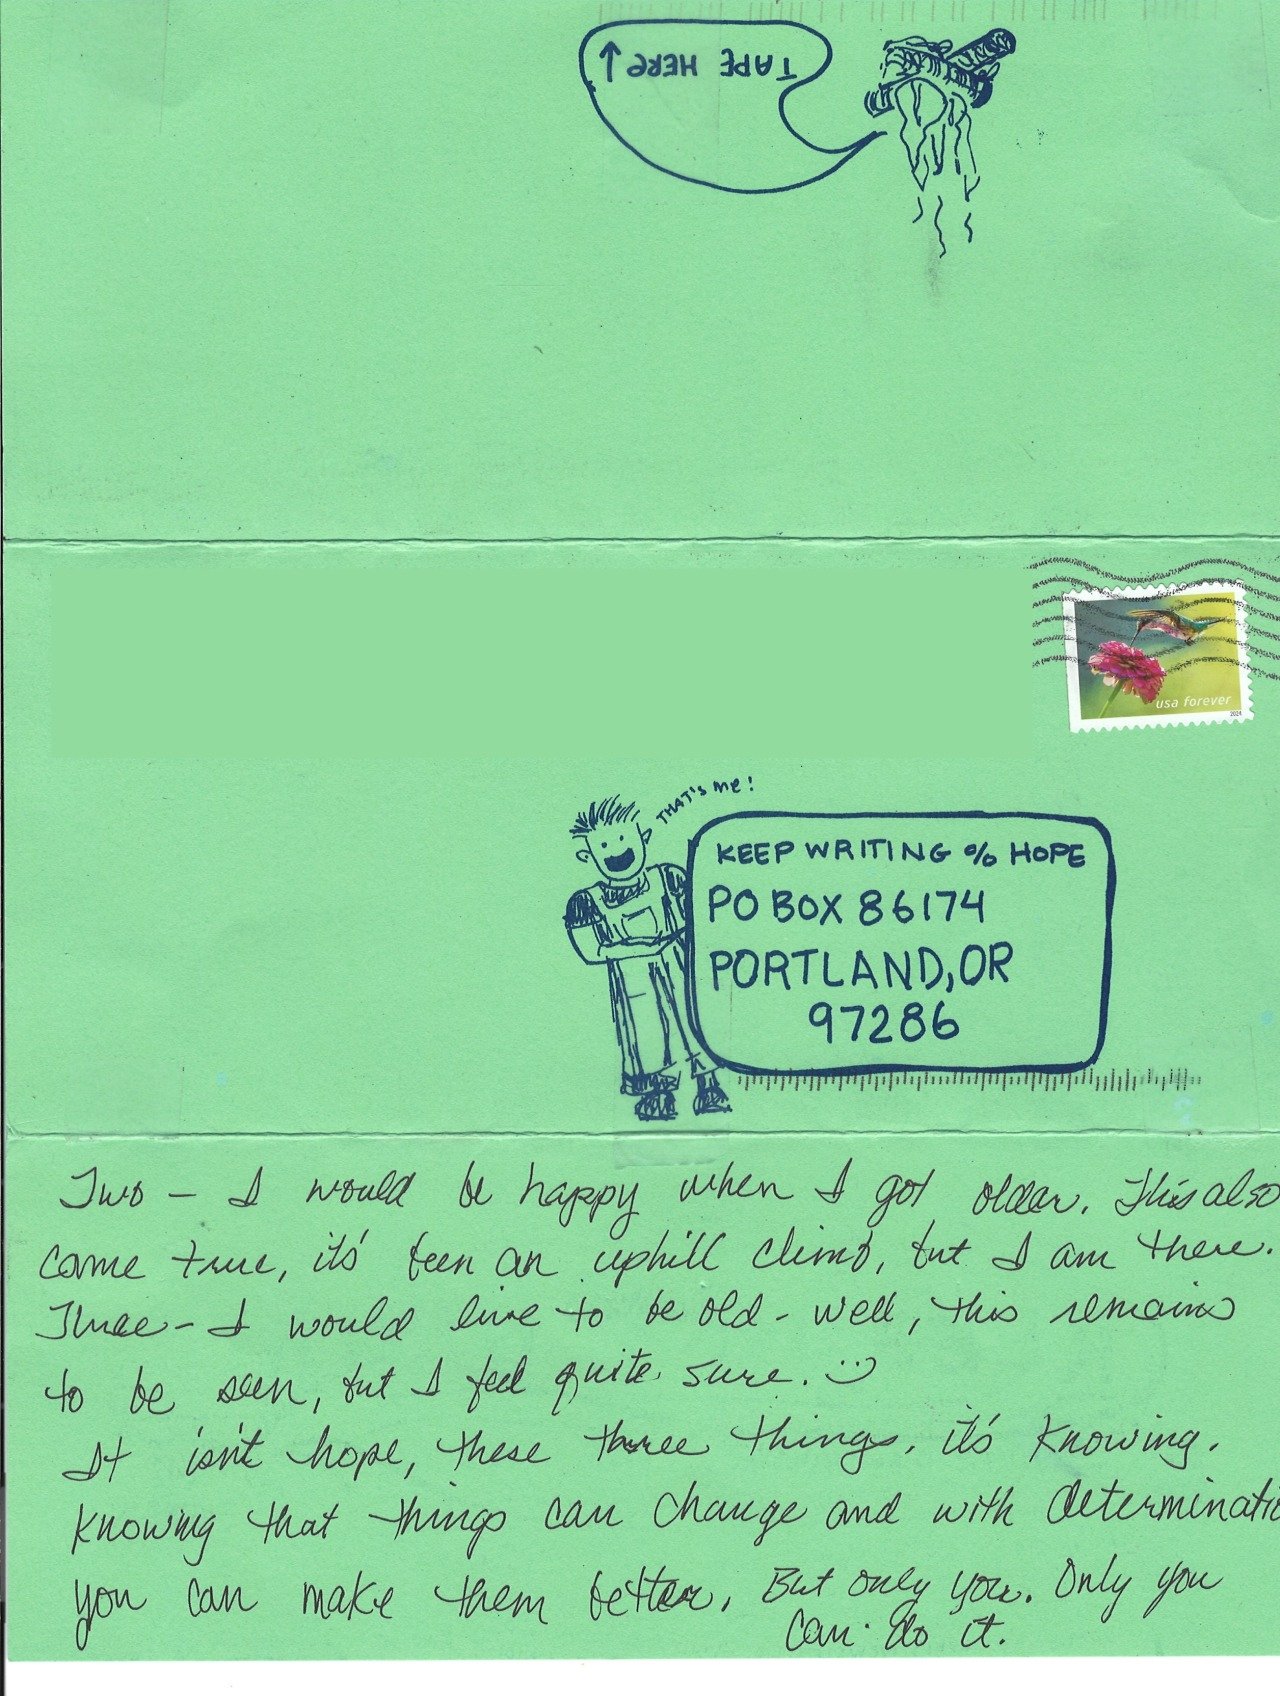 TAPE HERE ↑
usa forever
2024
THAT'S ME!
KEEP WRITING % HOPE
PO BOX 86174
PORTLAND, OR
97286
Two – I would be happy when I got older. This also
came true, it's been an uphill climb, but I am there.
Three – I would live to be old – well, this remains
to be seen, but I feel quite sure. :)
It isn't hope, these three things, it's knowing.
Knowing that things can change and with determinatio
you can make them better. But only you. Only you
can do it.